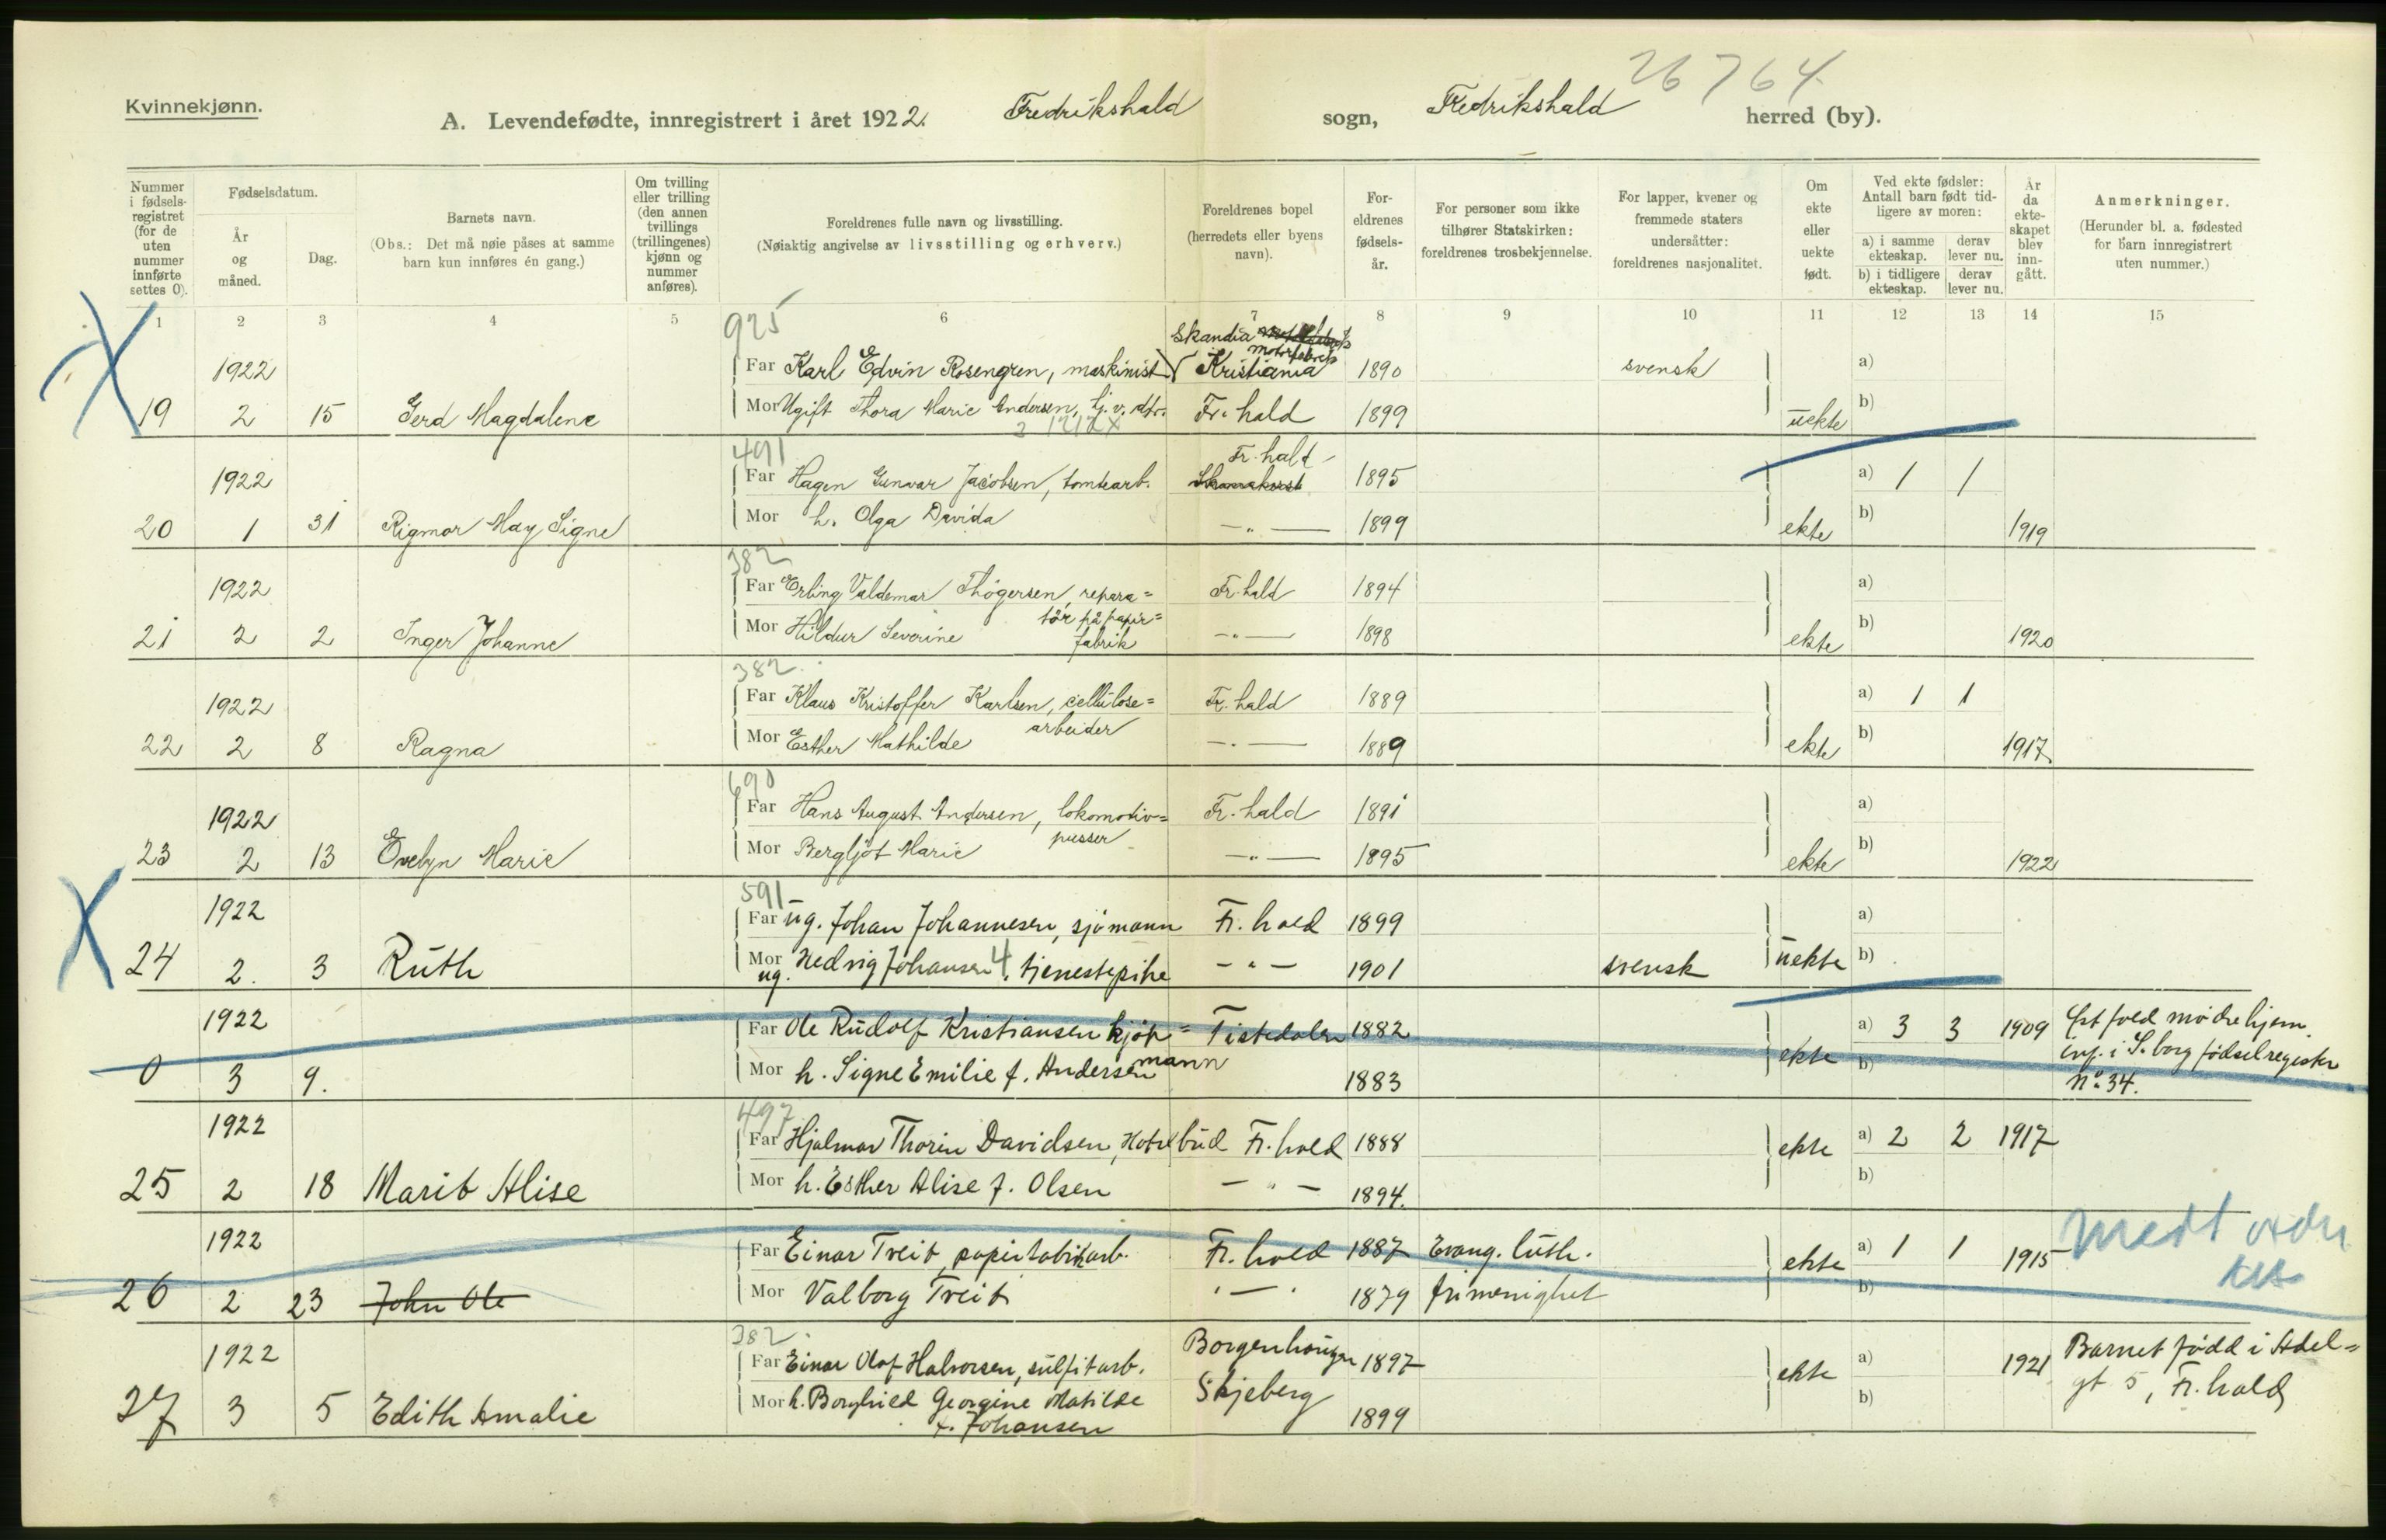 26764
Kvinnekjønn.
A. Levendefødte, innregistrert i året 1922. Fredrikshald sogn, Fredrikshald herred (by).
Nummer i fødselsregistret (for de uten nummer innførte settes 0).
Fødselsdatum.
År og måned.
Dag.
Barnets navn.
(Obs.: Det må nøie påses at samme barn kun innføres én gang.)
Om tvilling eller trilling (den annen tvillings (trillingenes) kjønn og nummer anføres).
Foreldrenes fulle navn og livsstilling.
(Nøiaktig angivelse av livsstilling og erhverv.)
Foreldrenes bopel (herredets eller byens navn).
Foreldrenes fødselsår.
For personer som ikke tilhører Statskirken: foreldrenes trosbekjennelse.
For lapper, kvener og fremmede staters undersåtter: foreldrenes nasjonalitet.
Om ekte eller uekte født.
Ved ekte fødsler: Antall barn født tidligere av moren:
a) i samme ekteskap. derav lever nu.
b) i tidligere ekteskap. derav lever nu.
År da ekteskapet blev inngått.
Anmerkninger.
(Herunder bl. a. fødested for barn innregistrert uten nummer.)
1 2 3 4 5 6 7 8 9 10 11 12 13 14 15
925
Skandia
motorfabrik
1922 Far Karl Edvin Rosengren, maskinist Kristiania 1890 svensk a)
19 2 15 Gerd Magdalene Mor Ugift Thora Marie Andersen, tj. v. Fr.hald 1899 uekte b)
491
Fr.hald
1922 Far Hagen Gunvar Jacobsen, tomtearb. 1895 a) 1 1
20 1 31 Rigmor May Signe Mor h. Olga Davida —"— 1899 ekte b) 1919
382
1922 Far Erling Valdemar Thøgersen, repara= Fr.hald 1894 a)
tør på papir=
21 2 2 Inger Johanne Mor Hildur Severine fabrik —"— 1898 ekte b) 1920
382
1922 Far Klaus Kristoffer Karlsen, cellulose= Fr.hald 1889 a) 1 1
arbeider
22 2 8 Ragna Mor Esther Mathilde —"— 1889 ekte b) 1917
690
1922 Far Hans August Andersen, lokomotiv= Fr.hald 1891 a)
pusser
23 2 13 Evelyn Marie Mor Bergljot Marie —"— 1895 ekte b) 1922
591
1922 Far ug. Johan Johannesen, sjømann Fr.hald 1899 a)
24 2. 3 Ruth Mor ug. Hedvig Johansen 4, tjenestepike —"— 1901 svensk uekte b)
1922 Far Ole Rudolf Kristiansen kjøp= Tistedalen 1882 a) 3 3 1909 Østfold mødrehjem.
mann
0 3 9. Mor h. Signe Emilie f. Andersen 1883 ekte b) inf. i S.borg fødselregister
No. 34.
497
1922 Far Hjalmar Thorin Davidsen, Hotelbud Fr.hald 1888 ekte a) 2 2 1917
25 2 18 Marit Alise Mor h. Esther Alise f. Olsen —"— 1894. b)
1922 Far Einar Treit, papirfabrikarb. Fr.hald 1887 Evang. luth. ekte a) 1 1 1915
26 2 23 John Ole Mor Valborg Treit —"— 1879 frimenighet b)
382
1922 Far Einar Olaf Halvorsen, sulfitarb. Borgenhaugen 1897 ekte a) 1921 Barnet född i Adel=
27 3 5 Edith Amalie Mor h. Borghild Georgine Matilde Skjeberg 1899 b) gt 5, Fr.hald
f. Johansen